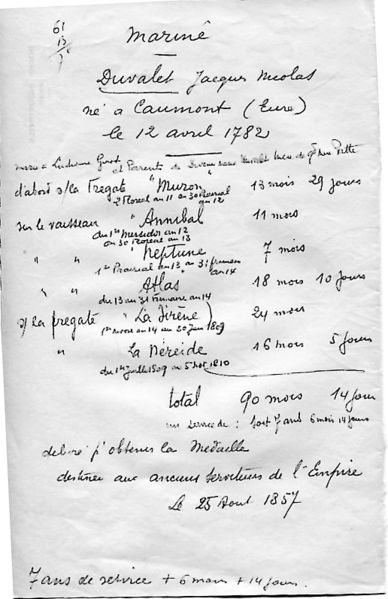 61
13
Marine
Duvalet Jacques Nicolas
né a Caumont (Eure)
le 12 avril 1782
d'abord s/la Fregate "Muron" 13 mois 29 jours
2 floreal an 11 au 30 prairial an 12
sur le vaisseau "Annibal 11 mois
du 1er Messidor an 12
au 30 floreal an 13
" " Neptune 7 mois
1er Prairial an 13 au 31 frimaire an 14
" " Atlas 18 mois 10 jours
du 1 3 an 31 frimaire an 14
s/ la fregate "La Sirène) 24 mois
an 14 au 30 juin 1809
" La Néréide 16 mois 5 jours
du 1er Juillet 1809 au 5 1810
total 90 mois 14 jours
un service de : soit 7 ans 6 mois 14 jours
obtenir la Medaille
destinée aux anciens serviteurs de l'Empire
Le 25 Aout 1857
7 ans de service + 6 mois + 14 jours.